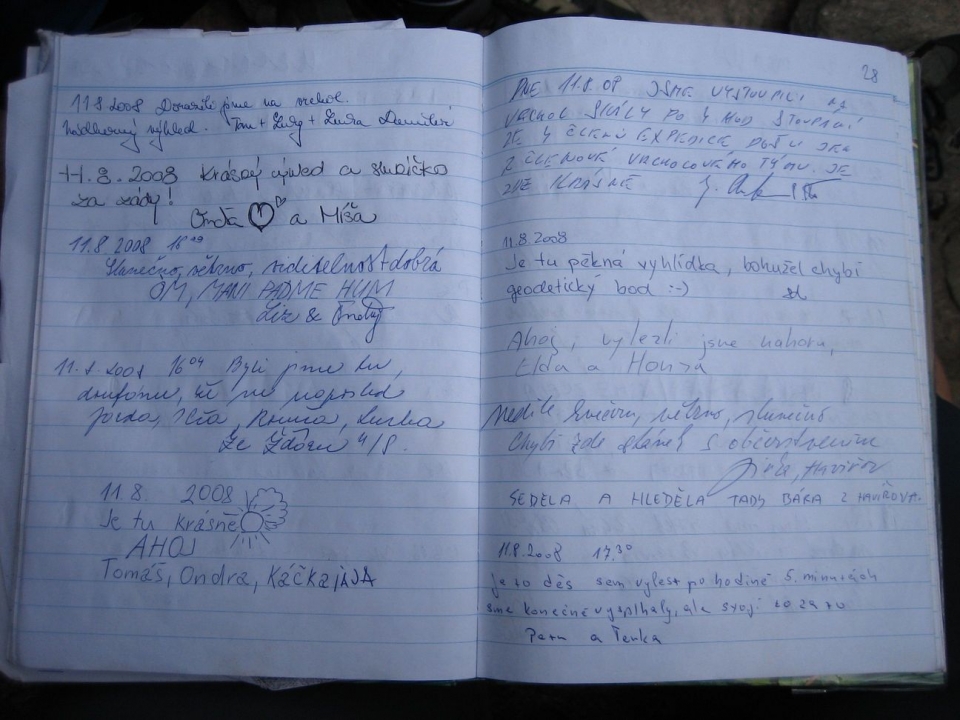 11.8.2008 Dorazili jsme na vrchol.
Nádherný výhled. Tom + Lucy +
11.8.2008 Krásný výhled a sluníčko
za zády!
Ondra a Míša
11.8.2008 16
Slunečno, větrno, viditelnost dobrá
OM, MANI PADME HUM
&
11.8.2008 16 04 Byli jsme tu,
doufáme, že ne naposled
Lenka
Ze Žďáru
11.8. 2008
Je tu krásně
AHOJ
Tomáš, Ondra, Káčka
28
DNE 11.8.08 JSME VYSTOUPILI NA
VRCHOL SKÁLY PO 4 HOD STOUPÁNÍ
ZE 4 ČLENÉ EXPEDICE DOŠLI JEN
2 ČLENOVÉ VRCHOLOVÉHO TÝMU. JE
ZDE KRÁSNĚ
11.8.2008
Je tu pěkná vyhlídka, bohužel chybí
geodetický bod :-)
Ahoj, vylezli jsme nahoru,
Elda a Honza
větrno, slunečno
Chybí zde stánek s občerstvením
SEDĚLA A HLEDĚLA TADY BÁRA Z HAVÍŘOVA.
11.8.2008 17.30
je to děs sem vylest po hodině 5. minutách
sme konečně vyšplhaly, ale stojí to za to
a Terka